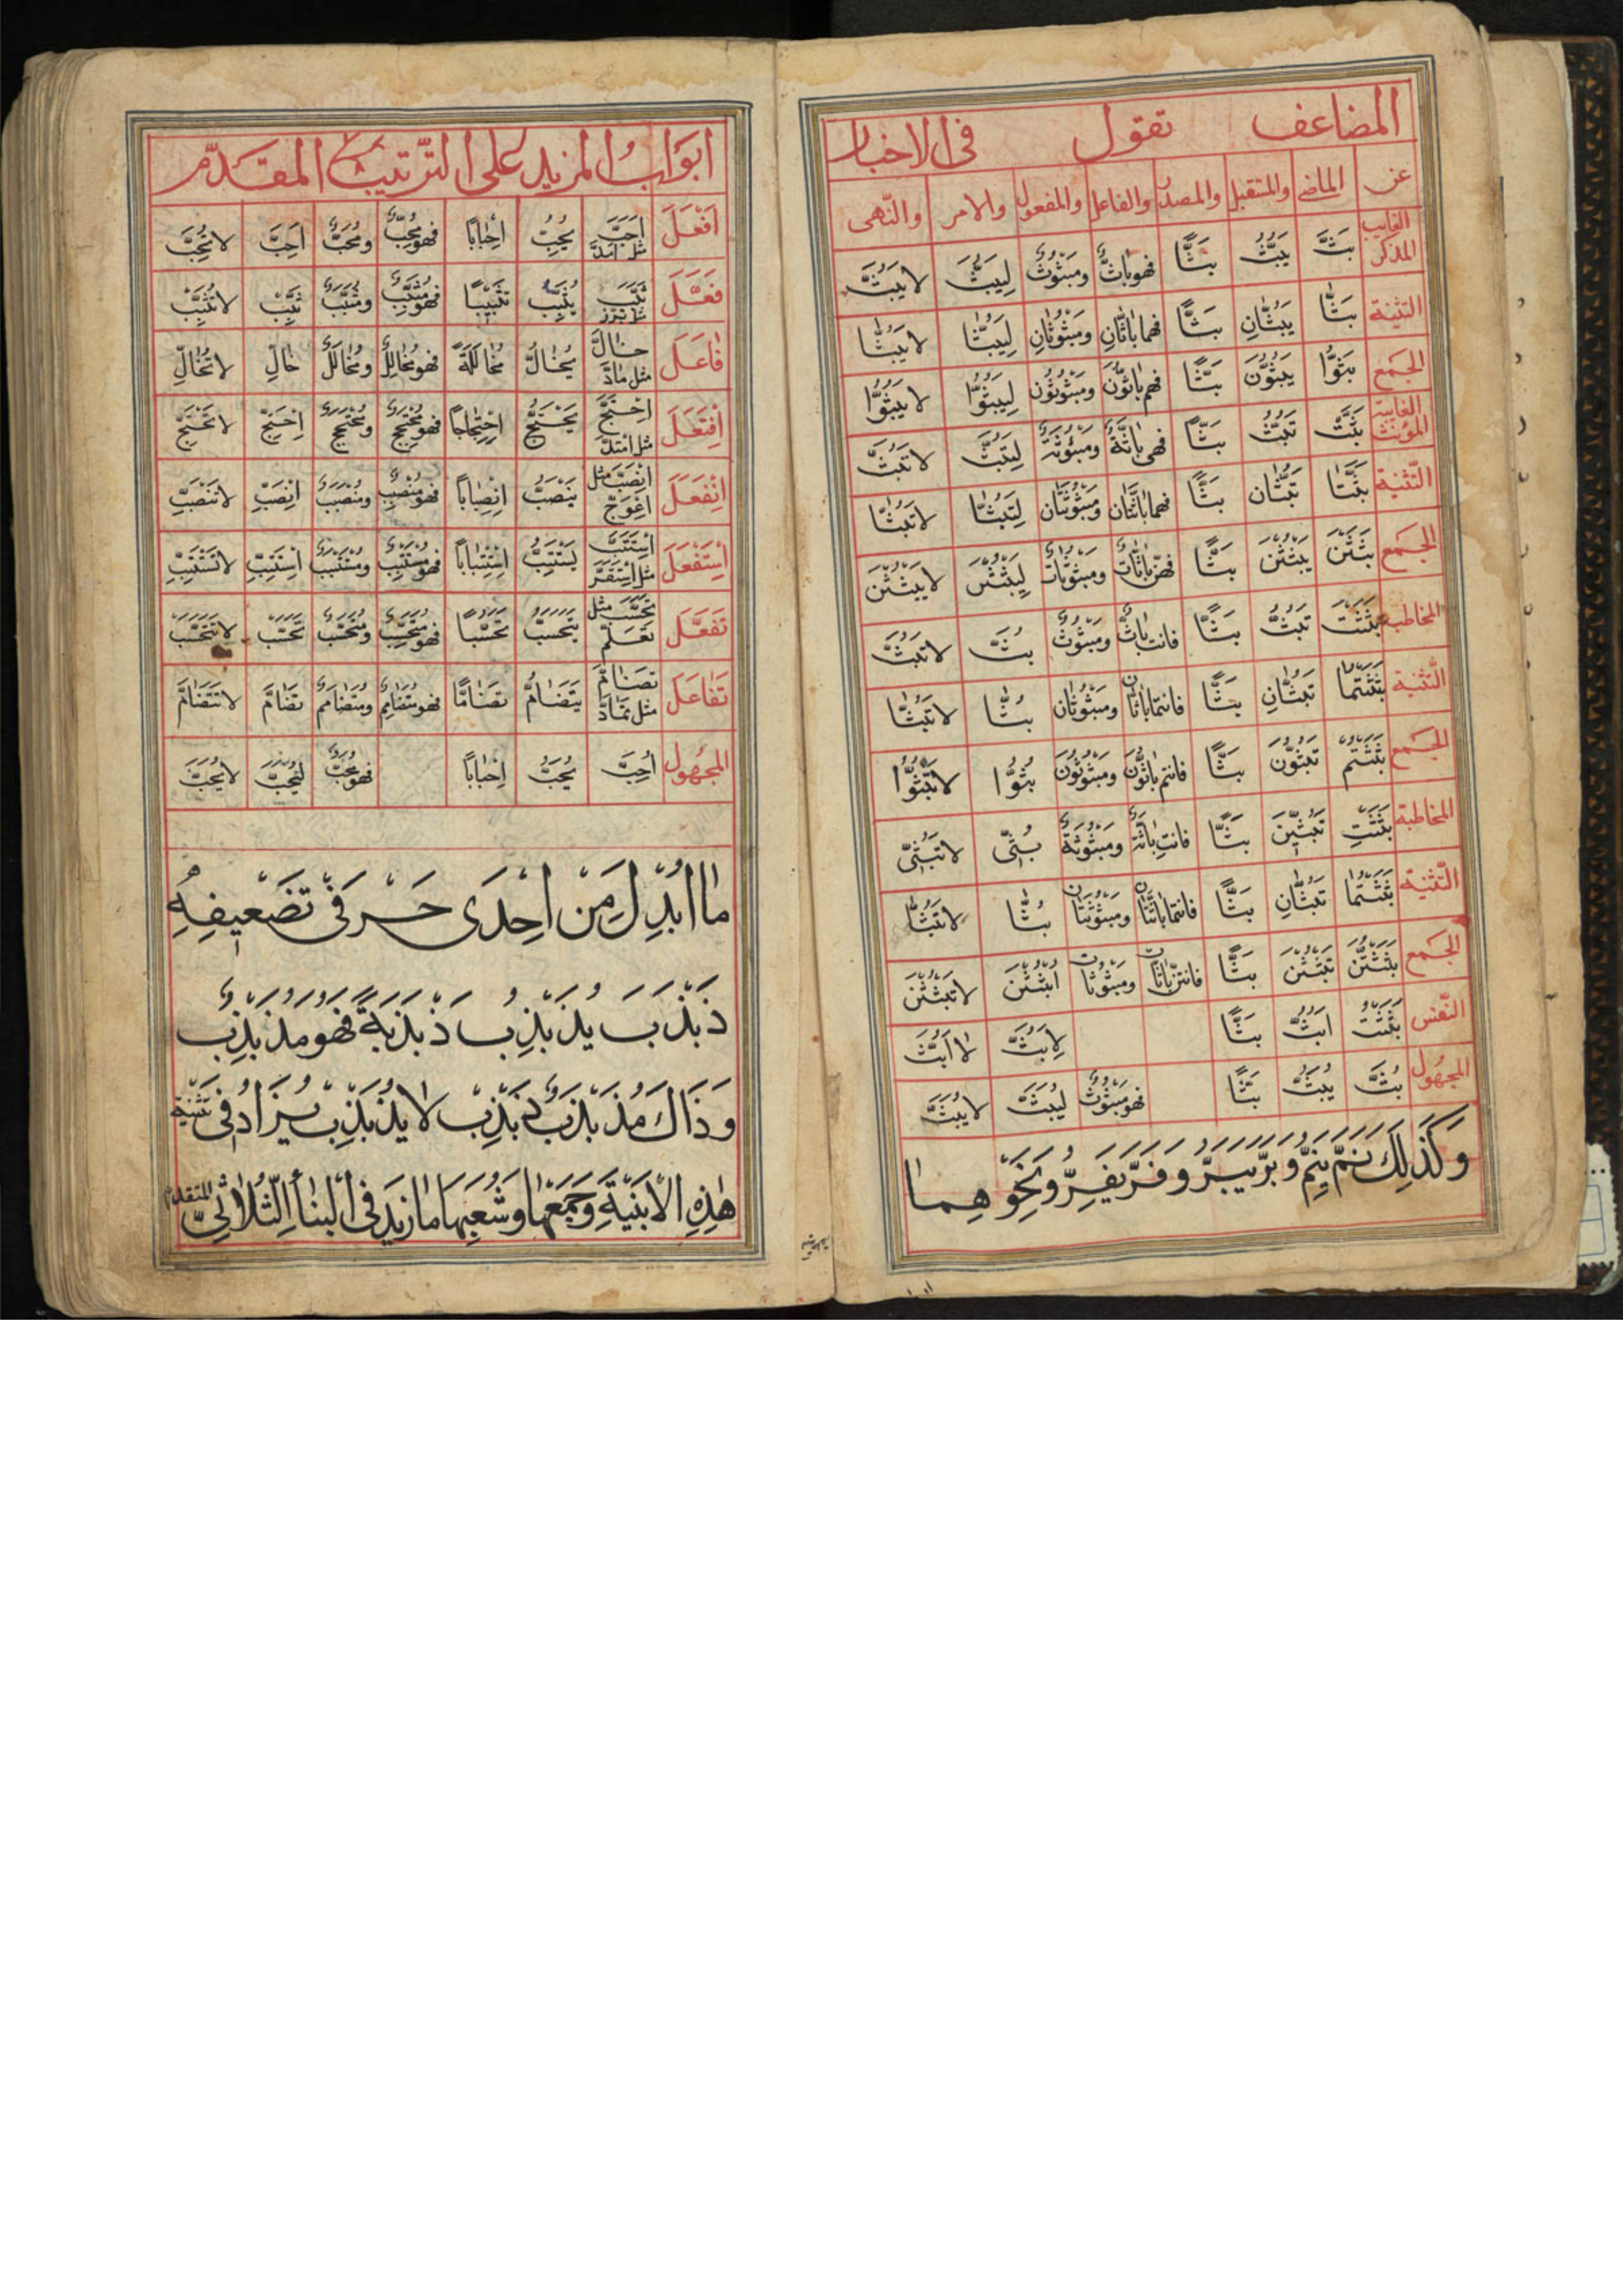 المضاعف تقول فى الاخبار
عن الماضى والمستقبل والمصدر والفاعل والمفعول والامر والنّهى
الغايب المذكر بَثَّ يَبُثُّ بَثًّا فهو باثٌّ ومَبثُوثٌ لِيَبُثَّ لا يَبُثَّ
التثنية بَثّا يَبُثّانِ بَثًّا فهما باثّانِ ومَبثُوثانِ لِيَبُثّا لا يَبُثّا
الجمع بَثُّوا يَبُثُّونَ بَثًّا فهم باثُّونَ ومَبثُوثُونَ لِيَبُثُّوا لا يَبُثُّوا
الغايبة المؤنث بَثَّتْ تَبُثُّ بَثًّا فهى باثَّةٌ ومَبثُوثَةٌ لِتَبُثَّ لا تَبُثَّ
التّثنية بَثَّتا تَبُثّانِ بَثًّا فهما باثَّتانِ ومَبثُوثَتانِ لِتَبُثّا لا تَبُثّا
الجمع بَثَثْنَ يَبْثُثْنَ بَثًّا فهنّ باثّاتٌ ومَبثُوثاتٌ لِيَبْثُثْنَ لا يَبْثُثْنَ
المخاطب بَثَثْتَ تَبُثُّ بَثًّا فانت باثٌّ ومَبثُوثٌ بُثَّ لا تَبُثَّ
التّثنية بَثَثْتُما تَبُثّانِ بَثًّا فانتما باثّان ومَبثُوثان بُثّا لا تَبُثّا
الجمع بَثَثْتُمْ تَبُثُّونَ بَثًّا فانتم باثُّونَ ومَبثُوثُونَ بُثُّوا لا تَبُثُّوا
المخاطبة بَثَثْتِ تَبُثِّينَ بَثًّا فانتِ باثَّةٌ ومَبثُوثَةٌ بُثِّى لا تَبُثِّى
التّثنية بَثَثْتُما تَبُثّانِ بَثًّا فانتما باثّتان ومَبثُوثَتان بُثّا لا تَبُثّا
الجمع بَثَثْتُنَّ تَبْثُثْنَ بَثًّا فانتنّ باثّات ومبثُوثات ابْثُثْنَ لا تَبْثُثْنَ
النّفس بَثَثْتُ ابُثُّ بَثًّا لِابُثَّ لا ابُثَّ
المجهول بُثَّ يُبَثُّ بَثًّا فهو مَبثُوثٌ لِيُبَثَّ لا يُبَثَّ
وَكَذلِكَ نَمَّ يَنِمُّ وبَرَّ يَبَرُّ وفَرَّ يَفِرُّ ونَحْوِهِما
ابوابُ المزيد على التّرتيب المقدّم
اَفْعَلَ اَحَبَّ مثل اَمَدَّ يُحِبُّ اِحْبابًا فهو مُحِبٌّ ومُحَبٌّ اَحِبَّ لا تُحِبَّ
فَعَّلَ ثَبَّبَ مثل بَرَّرَ يُثَبِّبُ تَثْبِيبًا فهو مُثَبِّبٌ ومُثَبَّبٌ ثَبِّبْ لا تُثَبِّبْ
فاعَلَ خالَّ مثل مادَّ يُخالُّ مُخالَلَةً فهو مُخالِلٌ ومُخالَلٌ خالِّ لا تُخالِّ
اِفْتَعَلَ اِحْتَجَّ مثل امتدّ يَحْتَجُّ اِحْتِجاجًا فهو مُحْتَجِجٌ ومُحْتَجَجٌ اِحْتَجِّ لا تَحْتَجِّ
اِنْفَعَلَ اِنْصَبَّ مثل اعْوَجّ يَنْصَبُّ اِنْصِبابًا فهو مُنْصَبِبٌ ومُنْصَبَبٌ اِنْصَبِّ لا تَنْصَبِّ
اِسْتَفْعَلَ اِسْتَتَبَّ مثل اسْتَقَرَّ يَسْتَتِبُّ اِسْتِتْبابًا فهو مُسْتَتِبٌ ومُسْتَتَبٌ اِسْتَتِبِّ لا تَسْتَتِبِّ
تَفَعَّلَ تَحَسَّبَ مثل تعلّم يَتَحَسَّبُ تَحَسُّبًا فهو مُتَحَسِّبٌ ومُتَحَسَّبٌ تَحَسَّبْ لا تَتَحَسَّبْ
تَفاعَلَ تَضامَّ مثل تمادَّ يَتَضامُّ تَضامًّا فهو مُتَضامِمٌ ومُتَضامَمٌ تَضامَّ لا تَتَضامَّ
المجهول اُحِبَّ يُحَبُّ اِحْبابًا فهو مُحَبٌّ لِيُحَبَّ لا يُحَبَّ
ما اُبْدِلَ مِنْ اِحْدَى حَرْفَىْ تَضْعِيفِهِ
ذَبْذَبَ يُذَبْذِبُ ذَبْذَبَةً فهو مُذَبْذِبٌ
وَذاكَ مُذَبْذَبٌ ذَبْذِبْ لا يُذَبْذِبْ يُزادُ فى تثنية
هٰذِهِ الابْنِيَةِ وَجَمْعِها وَشُعَبِها ما زِيدَ فى البناء الثّلاثىّ المتقدم